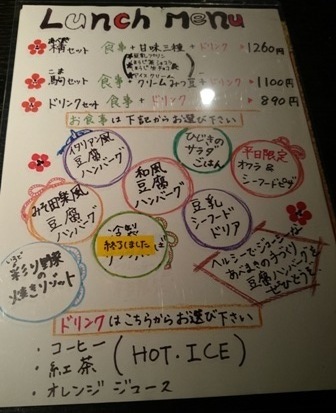 Lunch Menu
セット 食事 + 甘味三種 + ドリンク → 1260円
こま
駒セット 食事 + クリームみつ豆 + ドリンク → 1100円
ドリンクセット 食事 + ドリンク → 890円
お食事は下記からお選び下さい
イタリアン風
豆腐
ハンバーグ
ひじきの
サラダ
ごはん
平日限定
オクラ &
シーフードピザ
和風
豆腐
ハンバーグ
みそ田楽風
豆腐
ハンバーグ
豆乳
シーフード
ドリア
終了しました
彩り野菜
の
焼きリゾット
ヘルシーでジューシーな
手づくり
豆腐ハンバーグを
ぜひどうぞ
ドリンクはこちらからお選び下さい
・コーヒー
・紅茶 (HOT・ICE)
・オレンジジュース